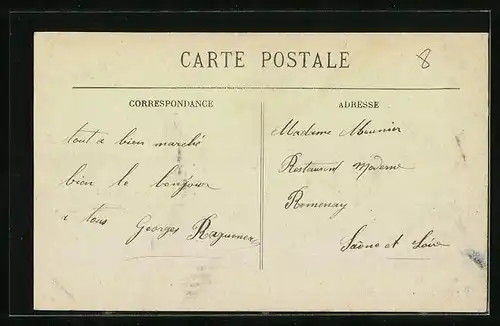 CARTE POSTALE
8
CORRESPONDANCE
tout a bien marché
bien le bonjour
à tous Georges
ADRESSE
Madame Meunier
Restaurant Moderne
Romenay
Saône et Loire